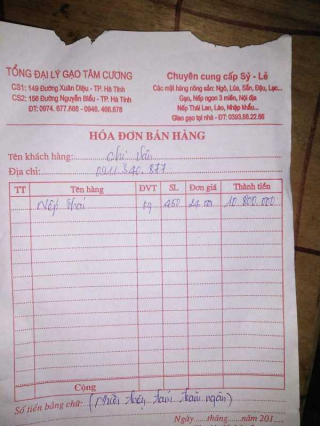 TỔNG ĐẠI LÝ GẠO TÂM CƯƠNG
CS1: 149 Đường Xuân Diệu - TP. Hà Tĩnh
CS2: 156 Đường Nguyễn Biểu - TP. Hà Tĩnh
ĐT: 0974. 677.668 - 0946. 466.678
Chuyên cung cấp Sỷ - Lẻ
Các mặt hàng nông sản: Ngô, Lúa, Sắn, Đậu, Lạc...
Gạo, Nếp ngon 3 miền, Nội địa
Nếp Thái Lan, Lào, Nhập khẩu...
Giao gạo tại nhà - ĐT: 0393.66.22.66
HÓA ĐƠN BÁN HÀNG
Tên khách hàng: chị Vân
Địa chỉ: 0911.340.877
TT Tên hàng ĐVT SL Đơn giá Thành tiền
Nếp Thái kg 450 24.000 10.800.000
Cộng
Số tiền bằng chữ: (Mười triệu tám trăm ngàn)
Ngày......tháng......năm 201...